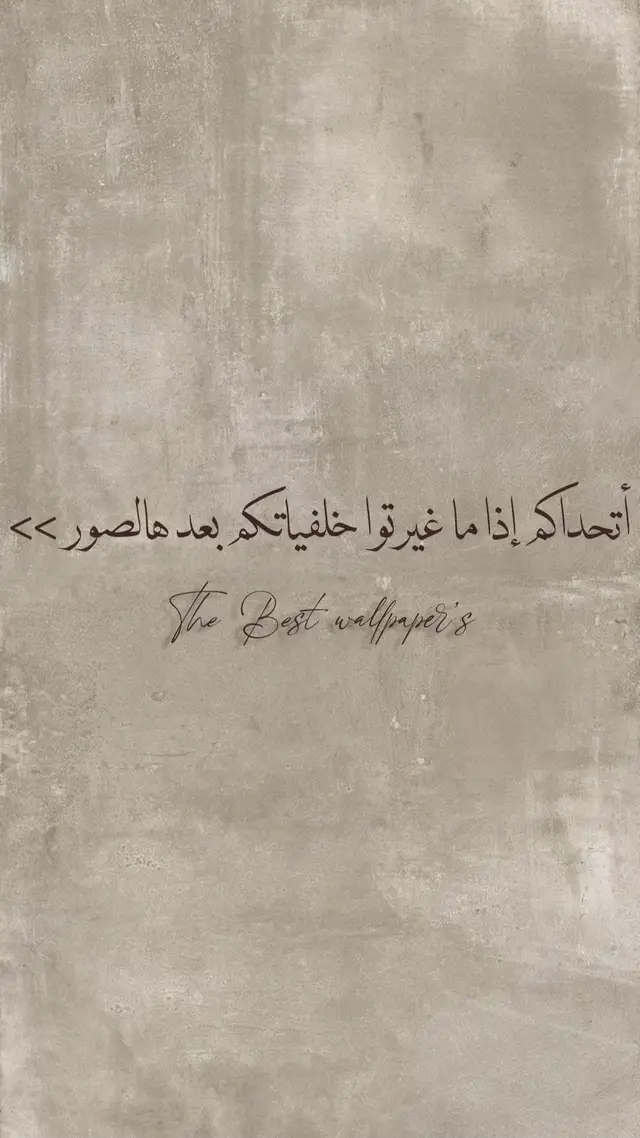 أتحداكم إذا ما غيرتوا خلفياتكم بعد هالصور >>
The Best wallpaper's